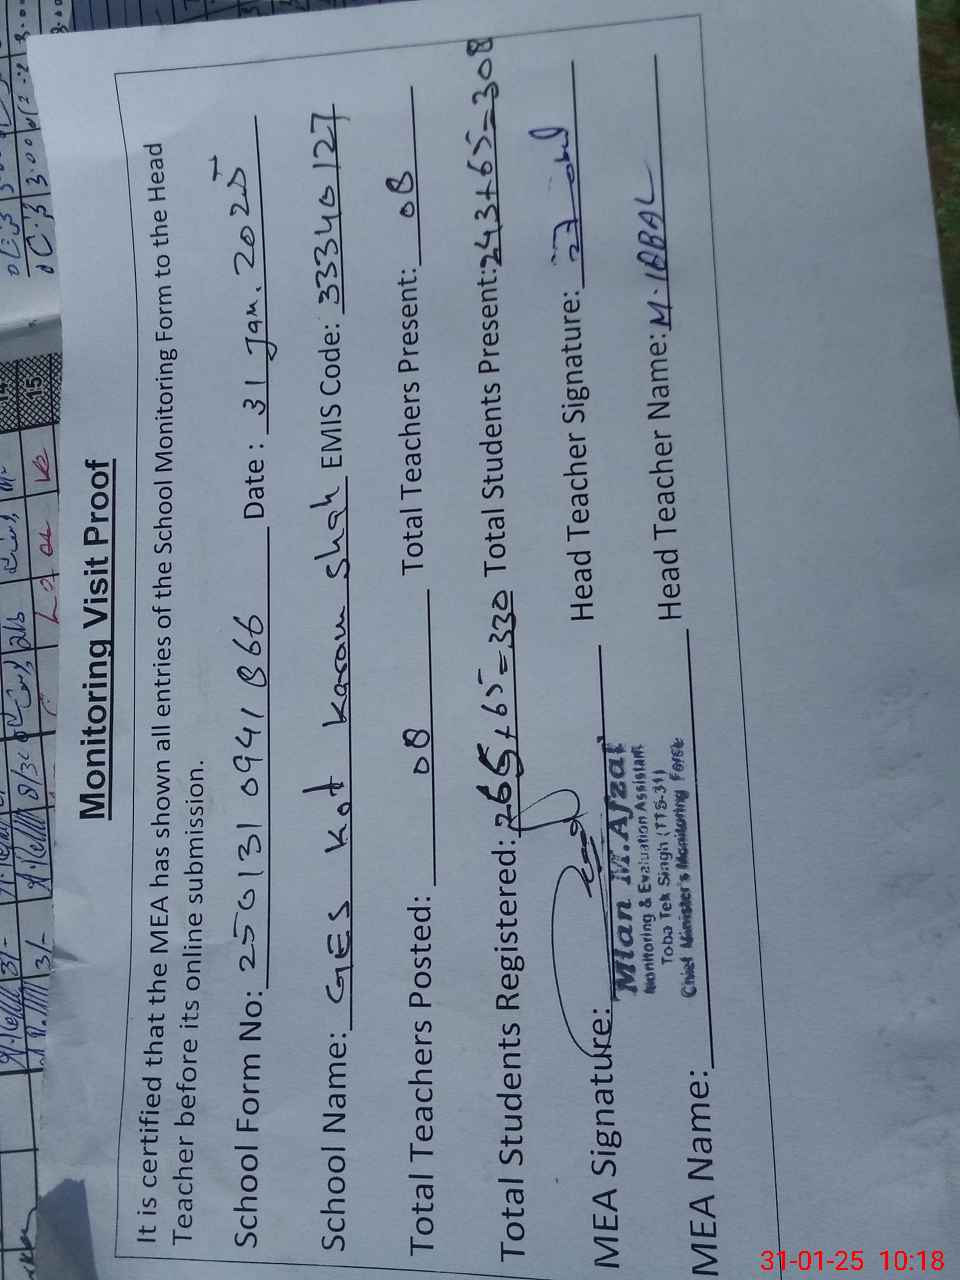 Monitoring Visit Proof
It is certified that the MEA has shown all entries of the School Monitoring Form to the Head
Teacher before its online submission.
School Form No: 250131 0941 866 Date : 31 Jan. 2025
School Name: GES Kot Karam Shah EMIS Code: 33340127
Total Teachers Posted: 08 Total Teachers Present: 08
Total Students Registered: 265+65=330 Total Students Present: 243+65=308
MEA Signature: Head Teacher Signature:
Mian M.Afzal
Monitoring & Evaluation Assistant
Toba Tek Singh (TTS-31)
Chief Minister's Monitoring Force
MEA Name: Head Teacher Name: M. IQBAL
15
31-01-25 10:18